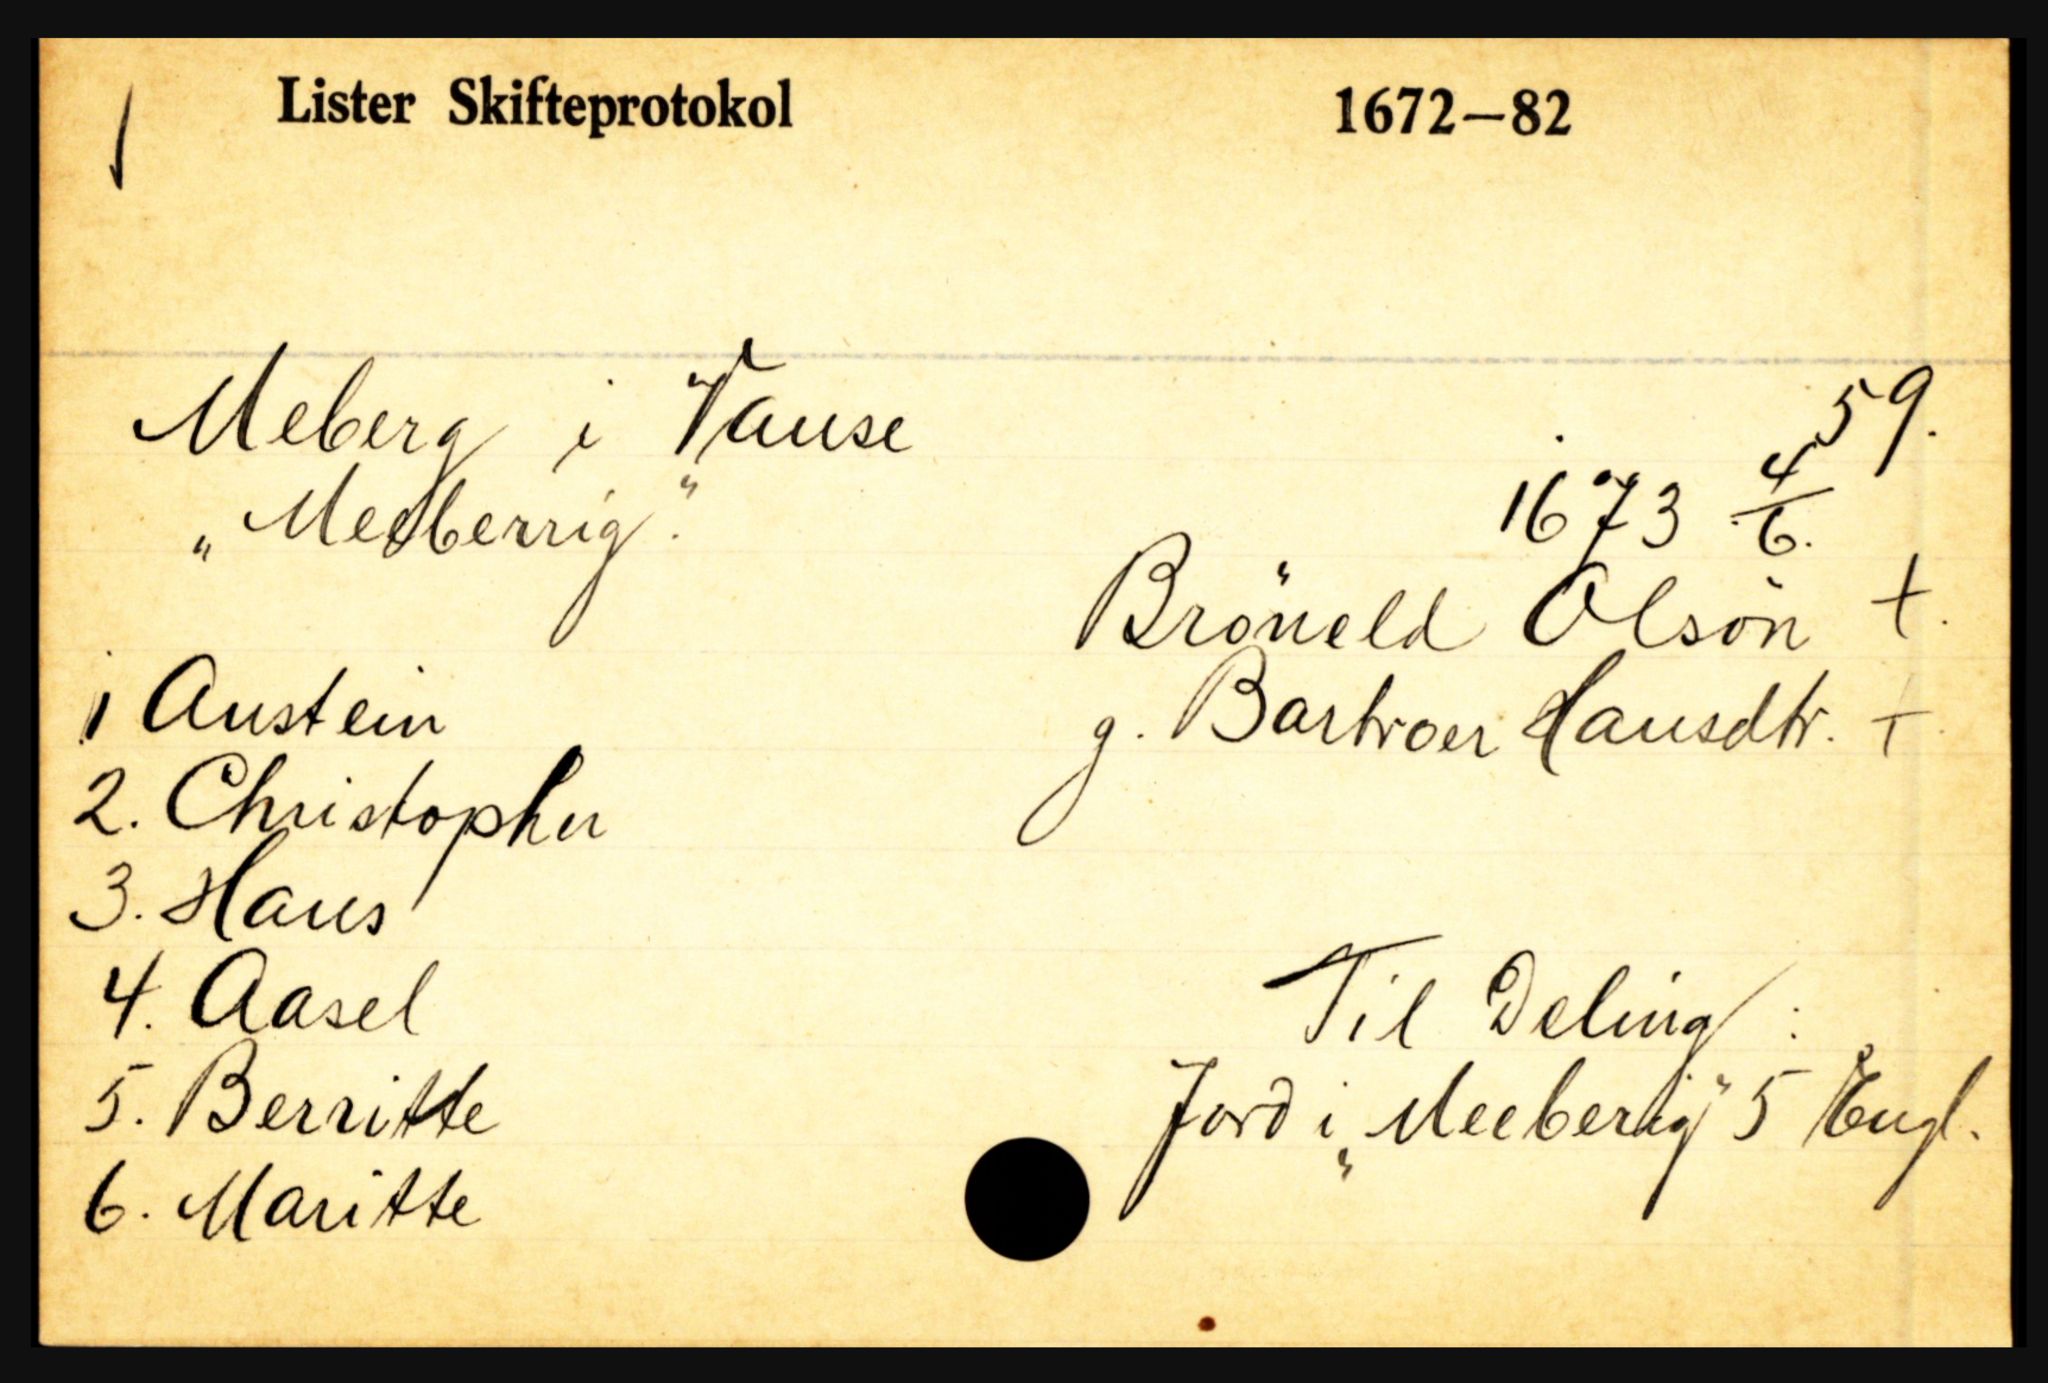 Lister Skifteprotokol 1672–82
Meberg i Vanse
59.
„Meeberrig".
1673 4/6.
Bröneld Olsön +.
g. Barbroer Hansdtr. +.
1 Anstein
2. Christopher
3. Hans
4. Aasel
5. Berritte
6. Maritte
Til Deling:
Jord i „Meeberig" 5 Engl.